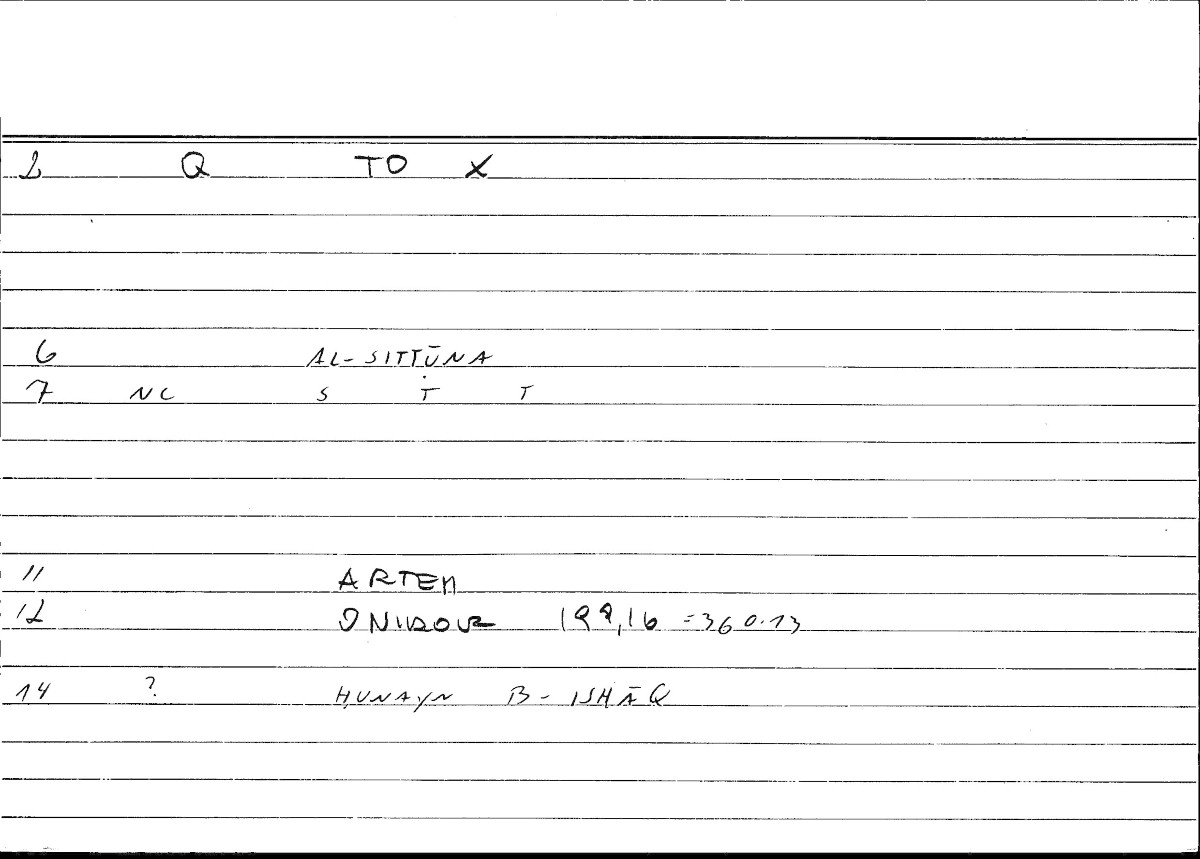 2 Q TO X
6 AL-SITTŪNA
7 NC S Ṫ T
11 ARTEM
12 ONIROCR 199,16 =360.13
14 ? ḤUNAYN B- ISḤĀQ